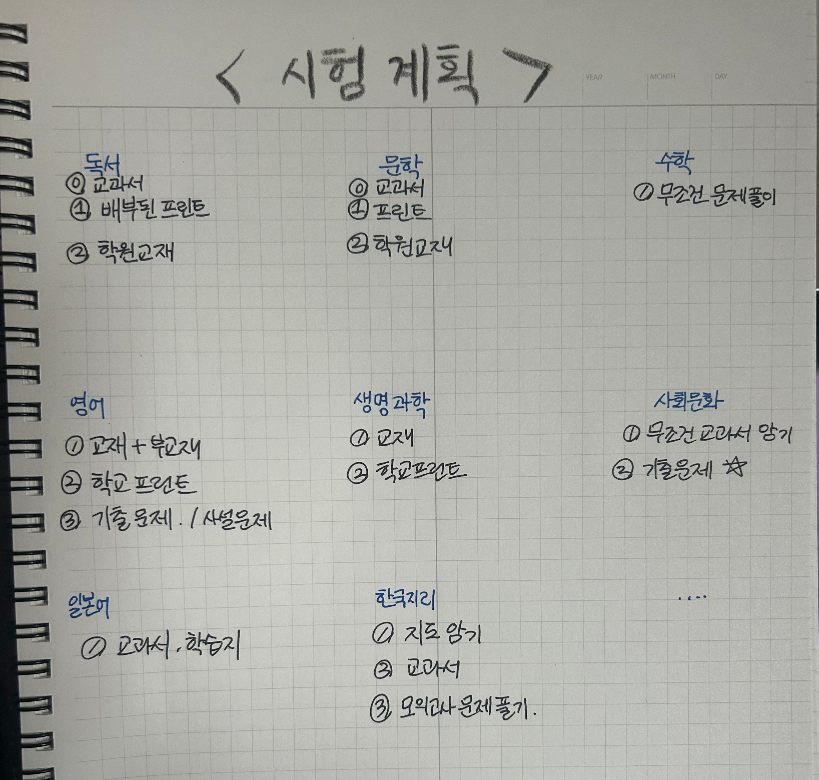 < 시험 계획 >
YEAR MONTH DAY
독서
⓪ 교과서
① 배부된 프린트
② 학원교재
문학
⓪ 교과서
① 프린트
② 학원교재
수학
① 무조건 문제풀이
영어
① 교재 + 부교재
② 학교 프린트
③ 기출문제 . / 사설문제
생명과학
① 교재
② 학교프린트
사회문화
① 무조건 교과서 암기
② 기출문제 ☆
일본어
① 교과서 . 학습지
한국지리
① 지도 암기
③ 교과서
③ 모의고사 문제 풀기.
....